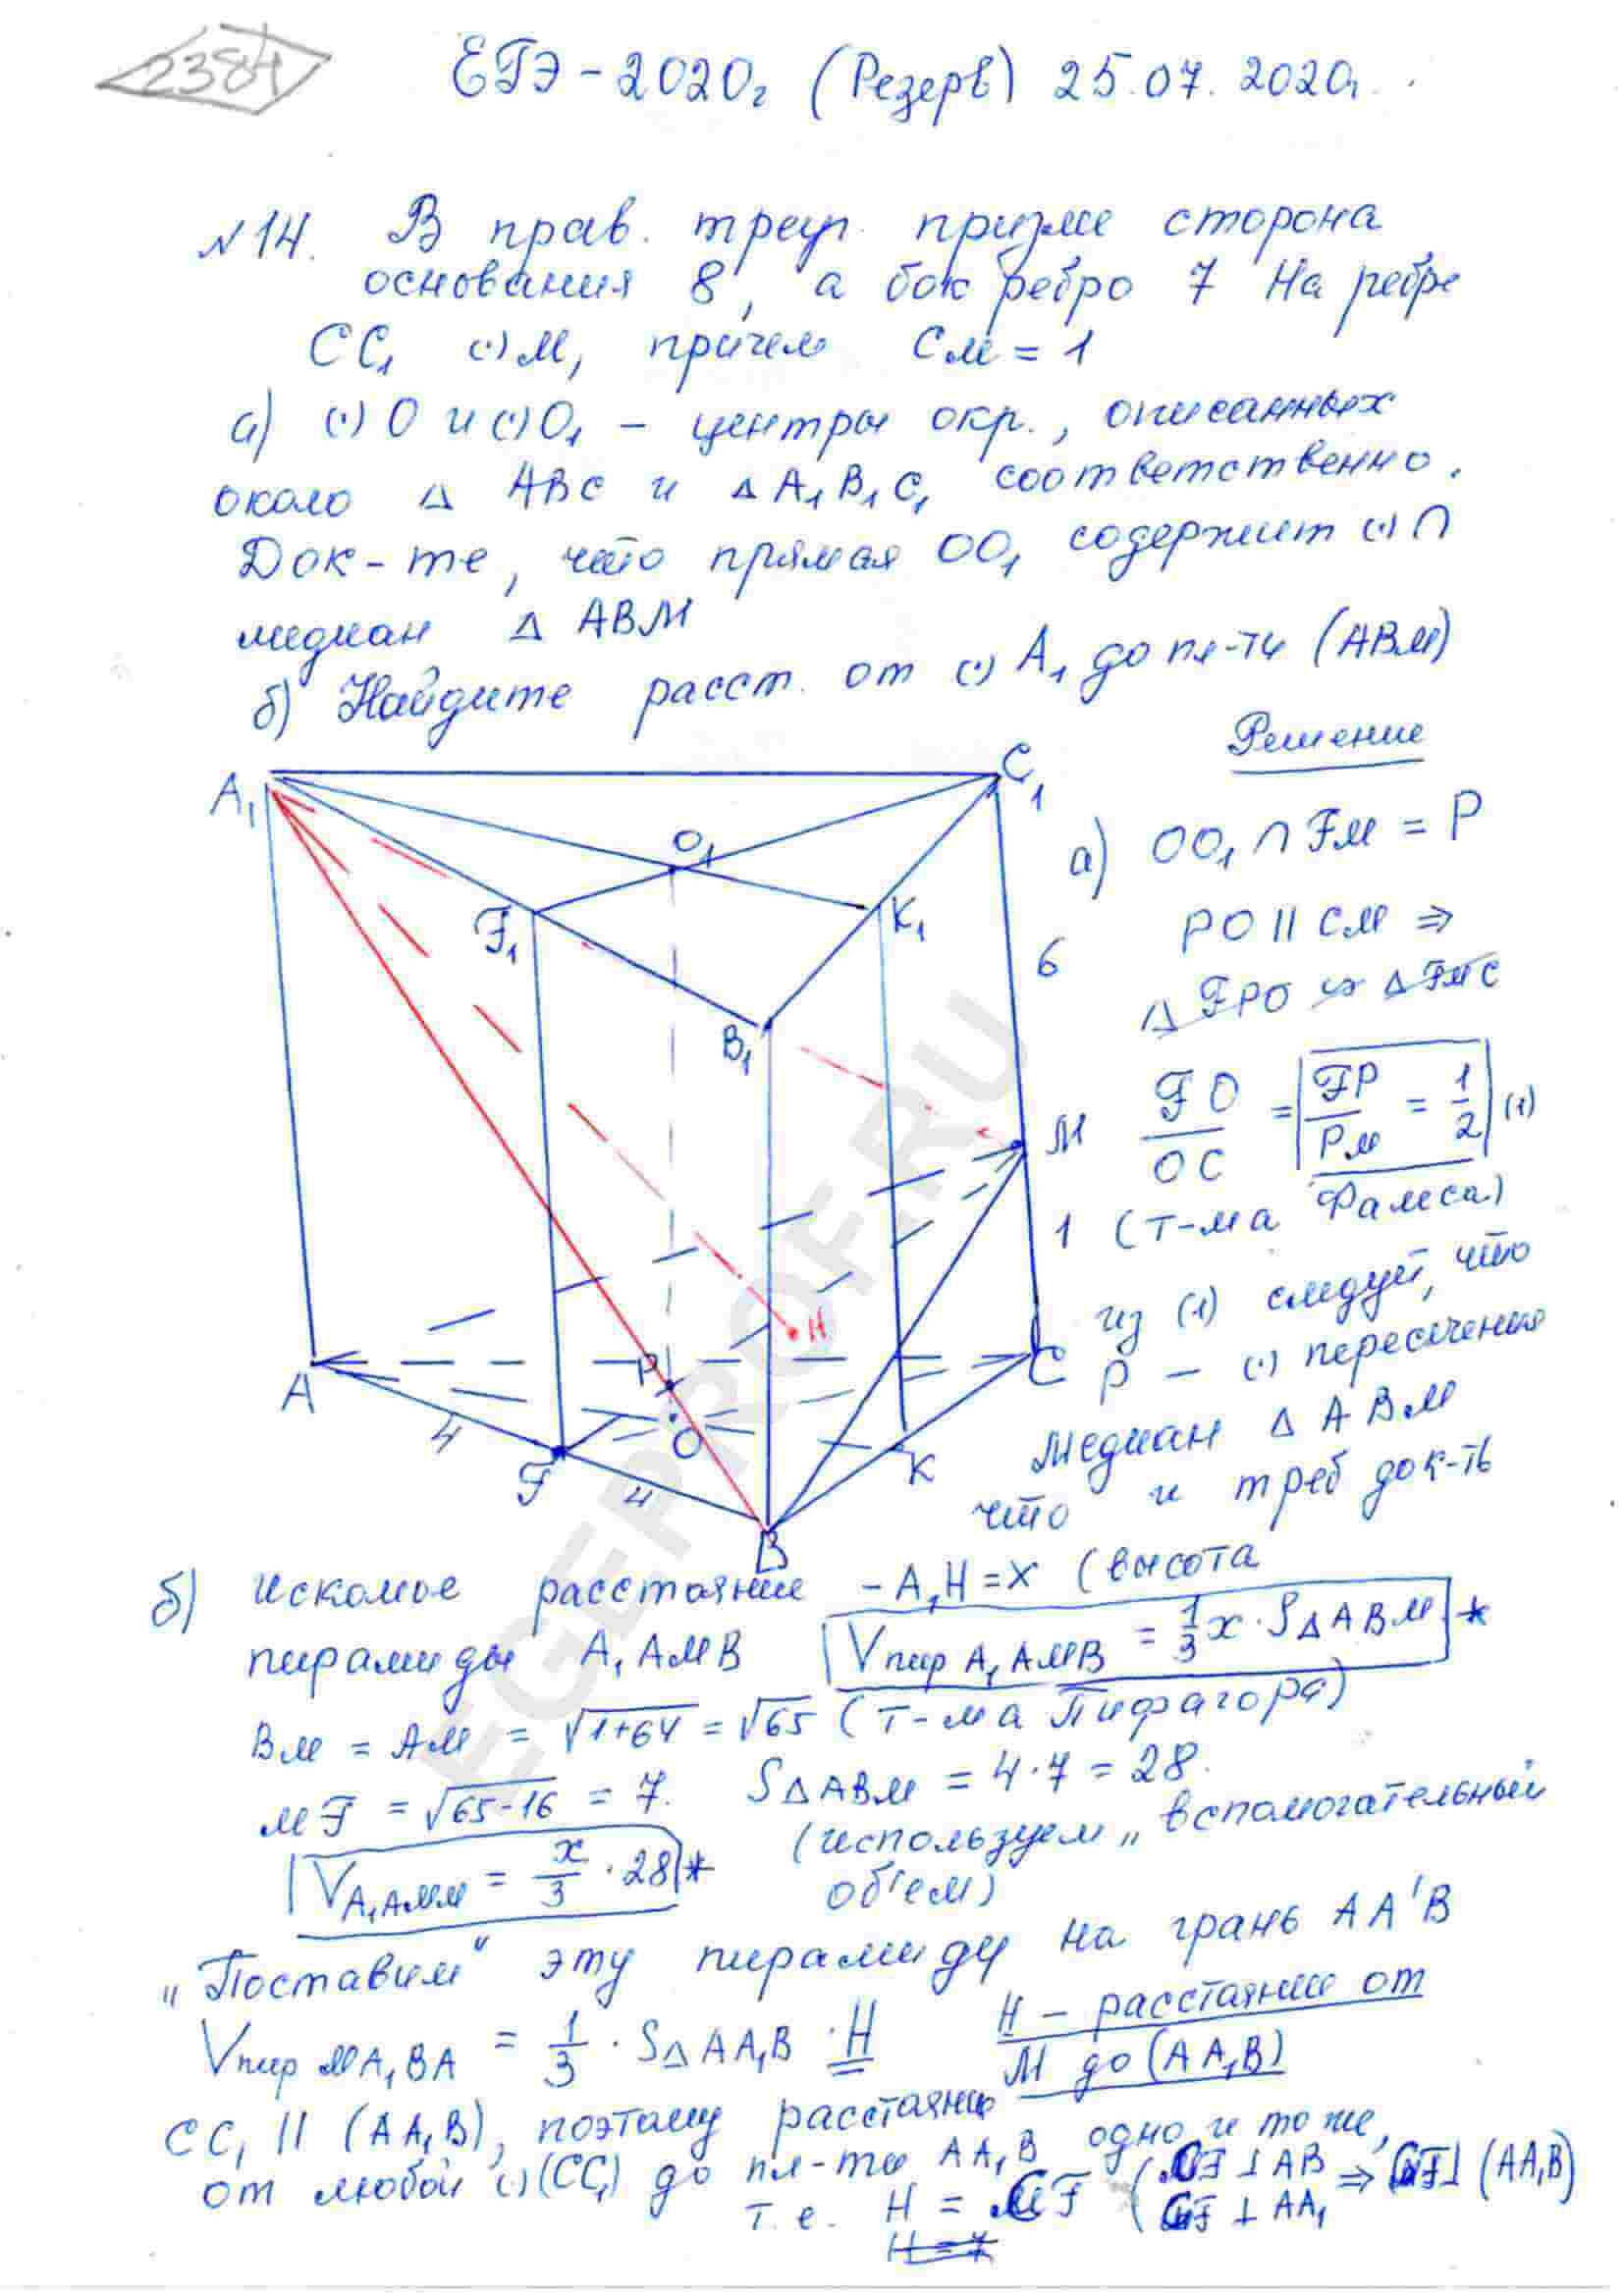 2384
ЕГЭ-2020г (Резерв) 25.07.2020г.
№14. В прав. треуг. призме сторона
основания 8, а бок ребро 7 На ребре
CC₁ (·)M, причем CM = 1
а) (·) O и (·) O₁ – центры окр., описанных
около △ ABC и △ A₁B₁C₁ соответственно.
Док-те, что прямая OO₁ содержит (·) ∩
медиан △ ABM
б) Найдите расст. от (·) A₁ до пл-ти (ABM)
Решение
A₁
C₁
O₁
F₁
K₁
B₁
6
M
1
H
P
O
A
4
F
4
B
K
C
а) OO₁ ∩ FM = P
PO || CM ⇒
△ FPO ∾ △ FMC
FO/OC = |FP/PM = 1/2| (1)
(Т-ма Фалеса)
из (1) следует, что
P – (·) пересечения
медиан △ ABM
что и треб док-ть
б) Искомое расстояние – A₁H = x (высота
пирамиды A₁AMB |Vпир A₁AMB = 1/3 x · S△ABM| *
BM = AM = √1+64 = √65 (т-ма Пифагора)
MF = √65-16 = 7. S△ABM = 4·7 = 28.
(используем „вспомогательный
объем)
|V A₁AMM = x/3 · 28| *
„Поставим" эту пирамиду на грань AA'B
Vпир MA₁BA = 1/3 · S△AA₁B · H
H – расстояние от
M до (AA₁B)
CC₁ || (AA₁B), поэтому расстояние
от любой (·)(CC₁) до пл-ти AA₁B одно и то же,
т.е. H = CF (CF ⊥ AB
CF ⊥ AA₁ ⇒ CF ⊥ (AA₁B)
H = 7
EGEPROF.RU